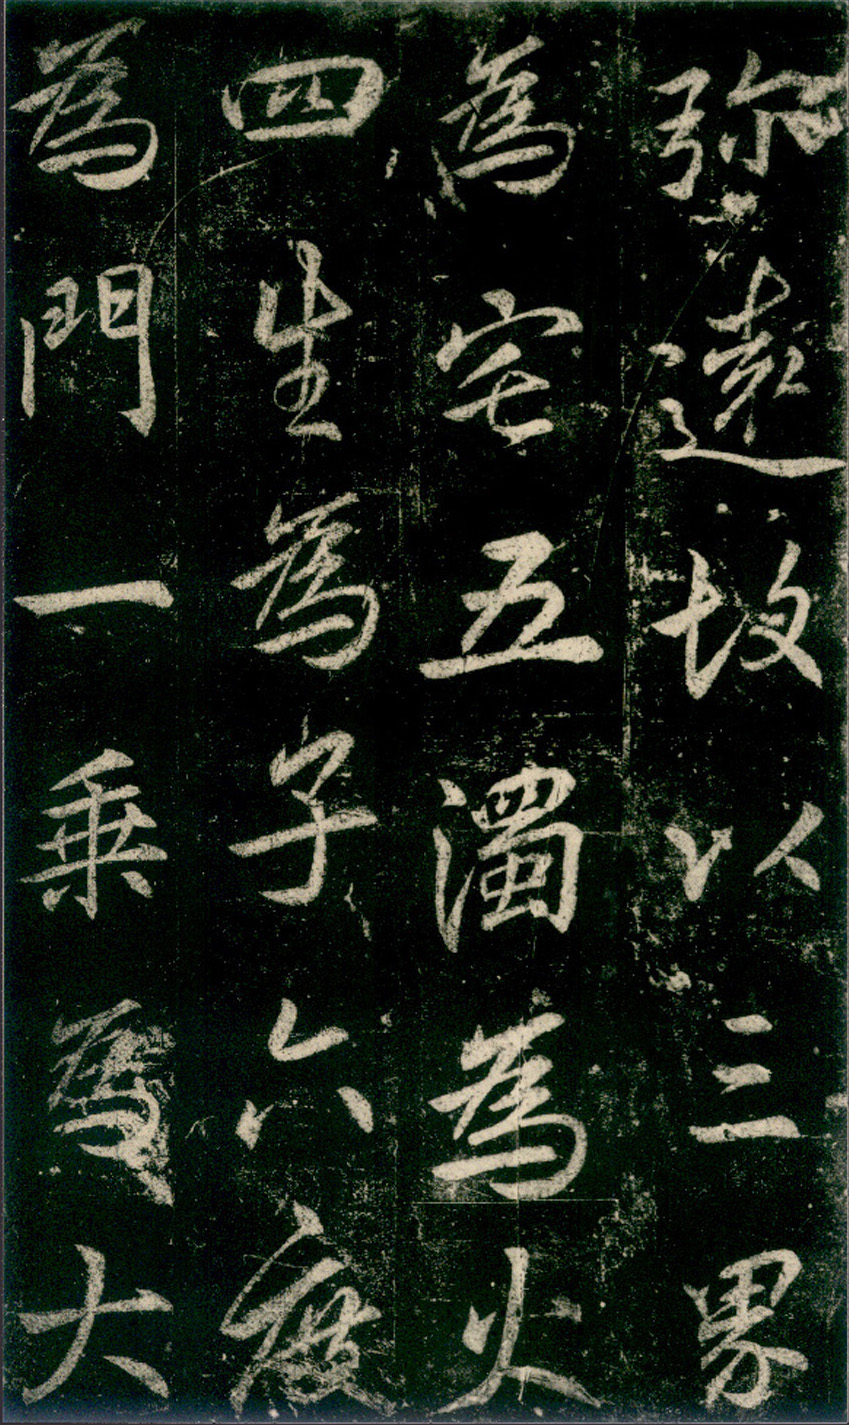 弥遠故以三界
為宅五濁為火
四生為子六度
為門一乘為大